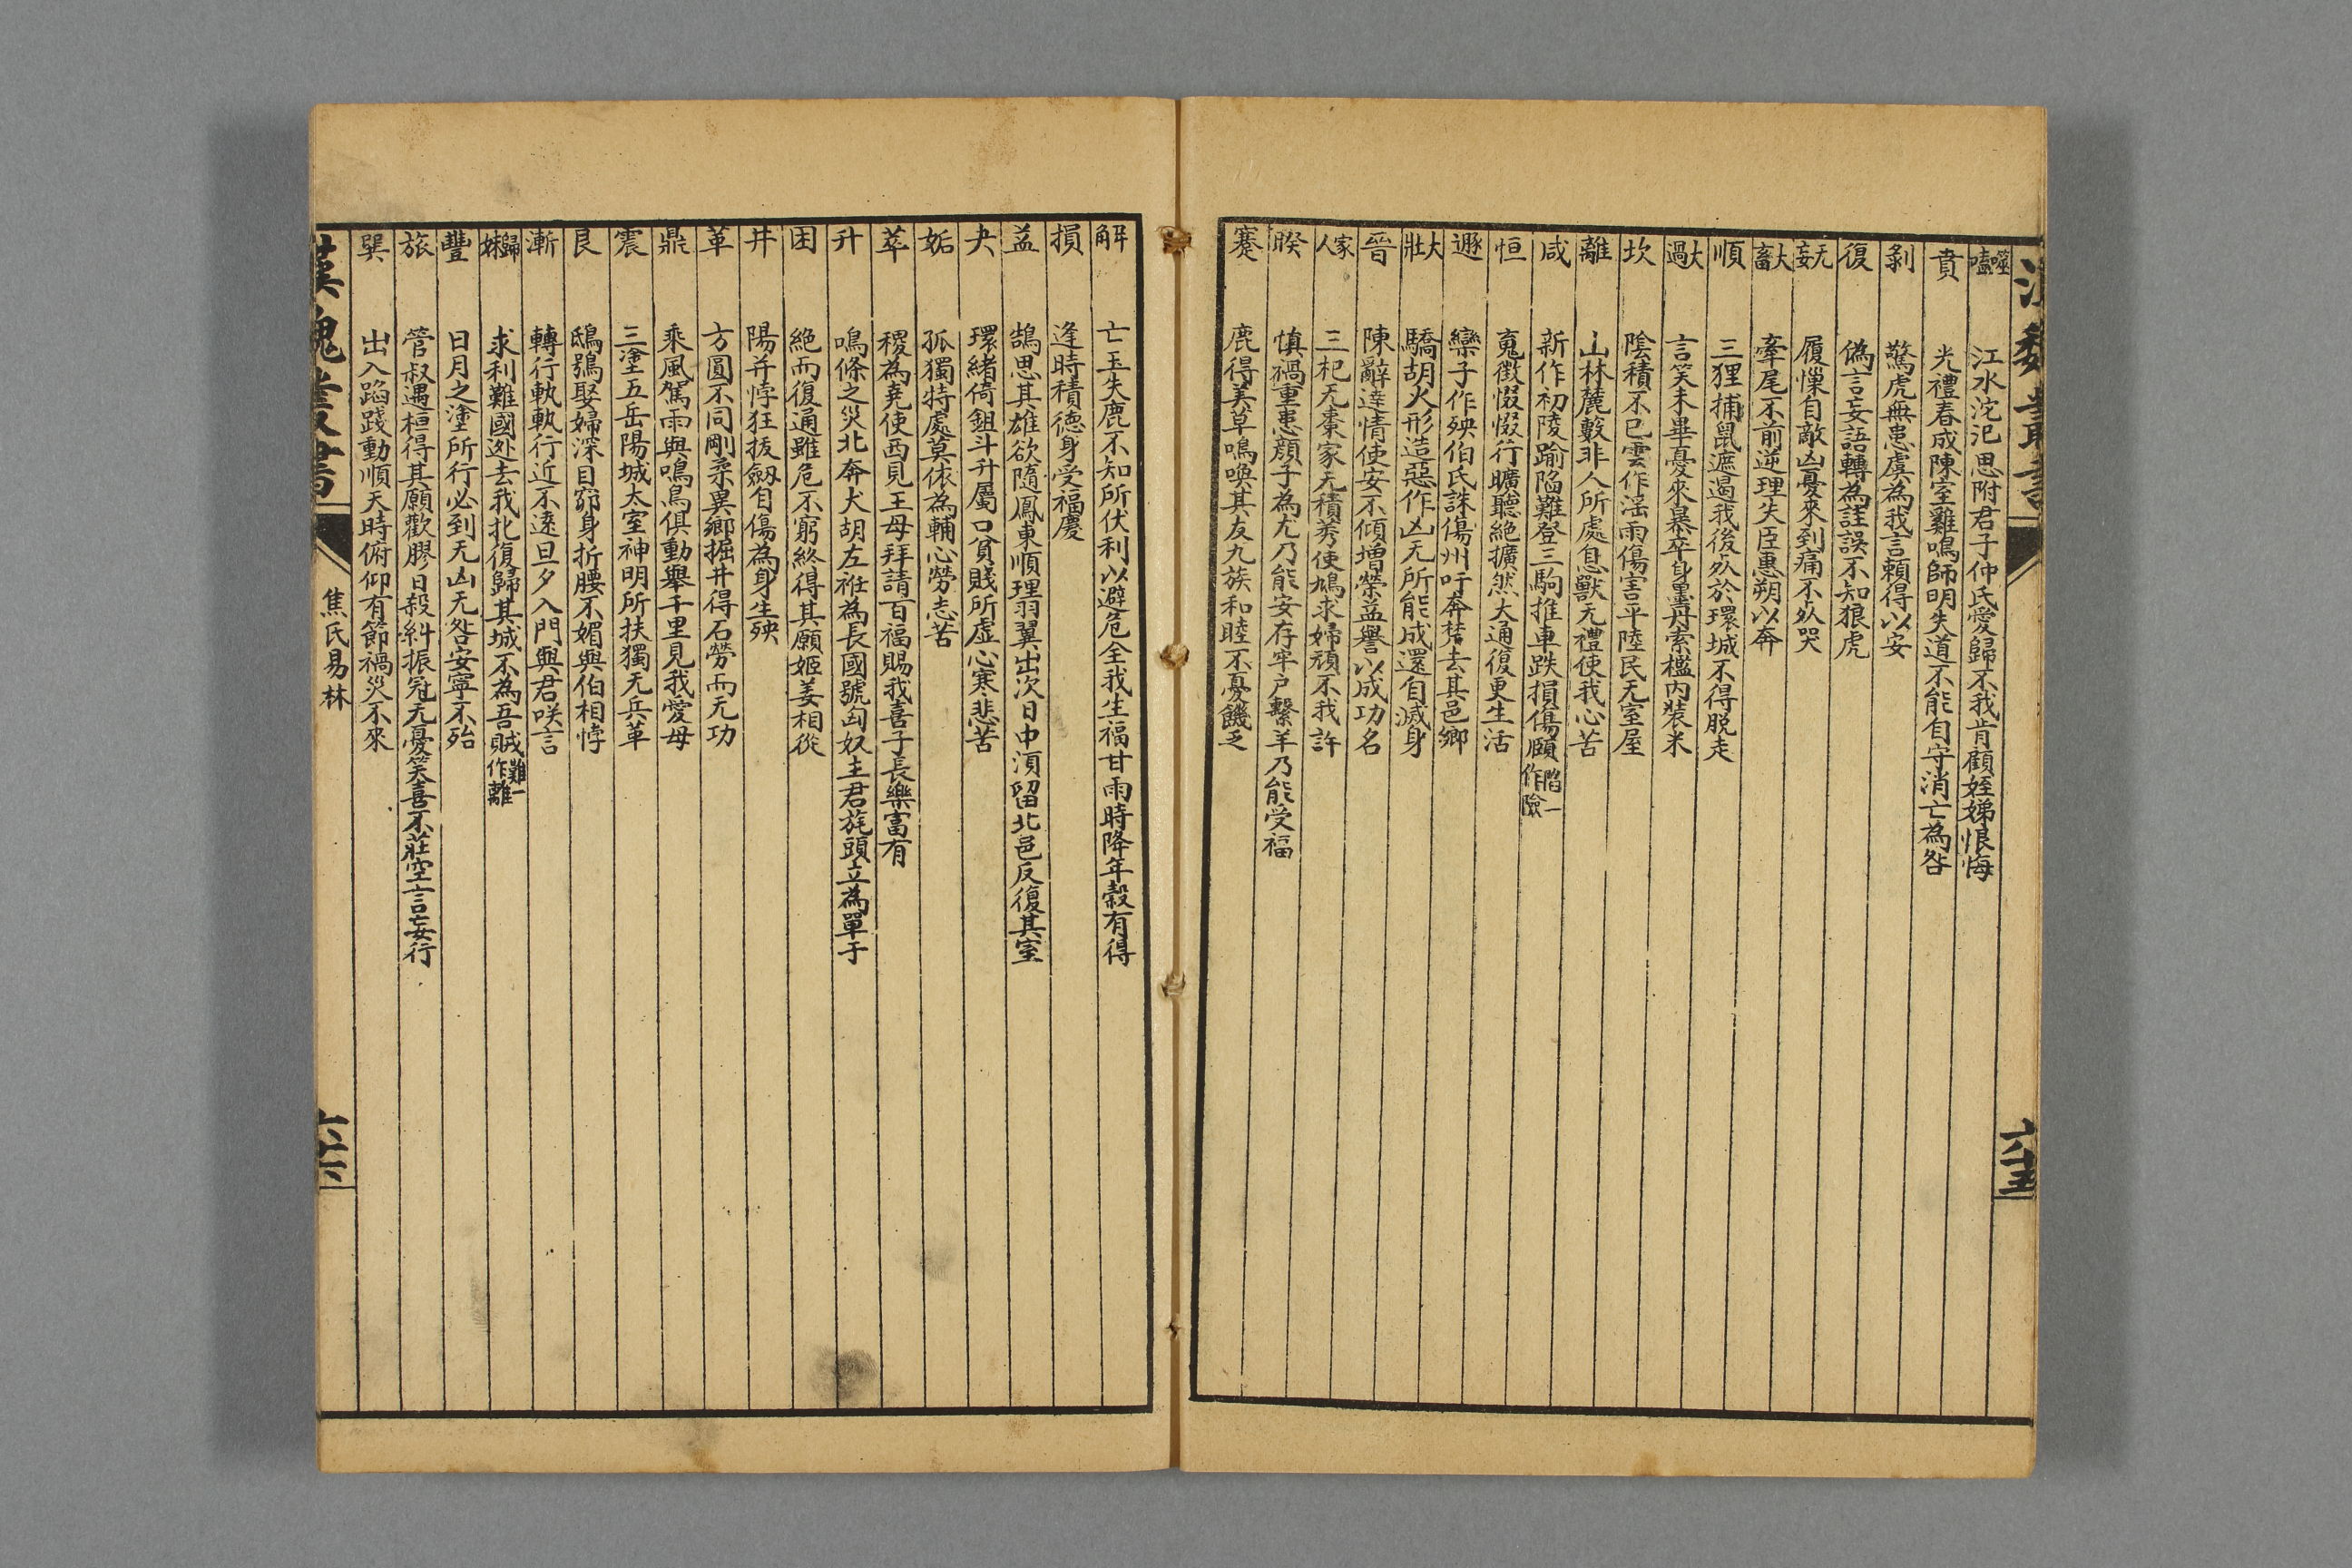 漢魏叢書
六十五
噬嗑 江水沱汜思附君子仲氏愛歸不我肯顧姪娣恨悔
賁 光禮春成陳室雞鳴師明失道不能自守消亡為咎
剝 驚虎無患虞為我言賴得以安
復 偽言妄語轉為詿誤不知狼虎
无妄 履慄自敵凶憂來到痛不歿哭
大畜 牽尾不前逆理失臣惠朔以奔
順 三狸捕鼠遮遏我後歿於環城不得脱走
大過 言笑未畢憂來暴卒身墨丹索檻內裝米
坎 陰積不已雲作滛雨傷害平陸民无室屋
離 山林麓藪非人所處息獸无禮使我心苦
咸 新作初陵踰陷難登三駒推車跌損傷頤 陷一作險
恒 寬徵惙惙行曠聽絕擴然大通復更生活
遯 欒子作殃伯氏誅傷州吁奔楛去其邑鄉
大壯 驕胡火形造惡作凶无所能成還自滅身
晉 陳辭達情使安不傾增榮益譽以成功名
家人 三杞无棗家无積莠使鳩求婦頑不我許
睽 慎禍重患顏子為尤乃能安存牢户繫羊乃能受福
蹇 鹿得美草鳴喚其友九族和睦不憂饑乏
解 亡玉失鹿不知所伏利以避危全我生福甘雨時降年穀有得
損 逢時積德身受福慶
益 鵠思其雄欲隨鳳東順理羽翼出次日中湏留北邑反復其室
夬 環緒倚鉏斗升屬口貧賤所虛心寒悲苦
姤 孤獨特處莫依為輔心勞志苦
萃 稷為堯使西見王母拜請百福賜我喜子長樂富有
升 鳴條之災北奔犬胡左袵為長國號匈奴主君旄頭立為單于
困 絶而復通雖危不窮終得其願姬姜相從
井 陽并悖狂拔劔自傷為身生殃
革 方圓不同剛柔異鄉掘井得石勞而无功
鼎 乘風駕雨與鳴鳥俱動舉千里見我愛母
震 三塗五岳陽城太室神明所扶獨无兵革
艮 鴟鴞娶婦深目窈身折腰不媚與伯相悖
漸 轉行軌軌行近不遠旦夕入門與君咲言
歸妹 求利難國迯去我北復歸其城不為吾賊 難一作離
豐 日月之塗所行必到无凶无咎安寧不殆
旅 管叔遇桓得其願歡膠日殺糾振冠无憂笑喜不莊空言妄行
巽 出入蹈踐動順天時俯仰有節禍災不來
漢魏叢書
焦氏易林
六十六